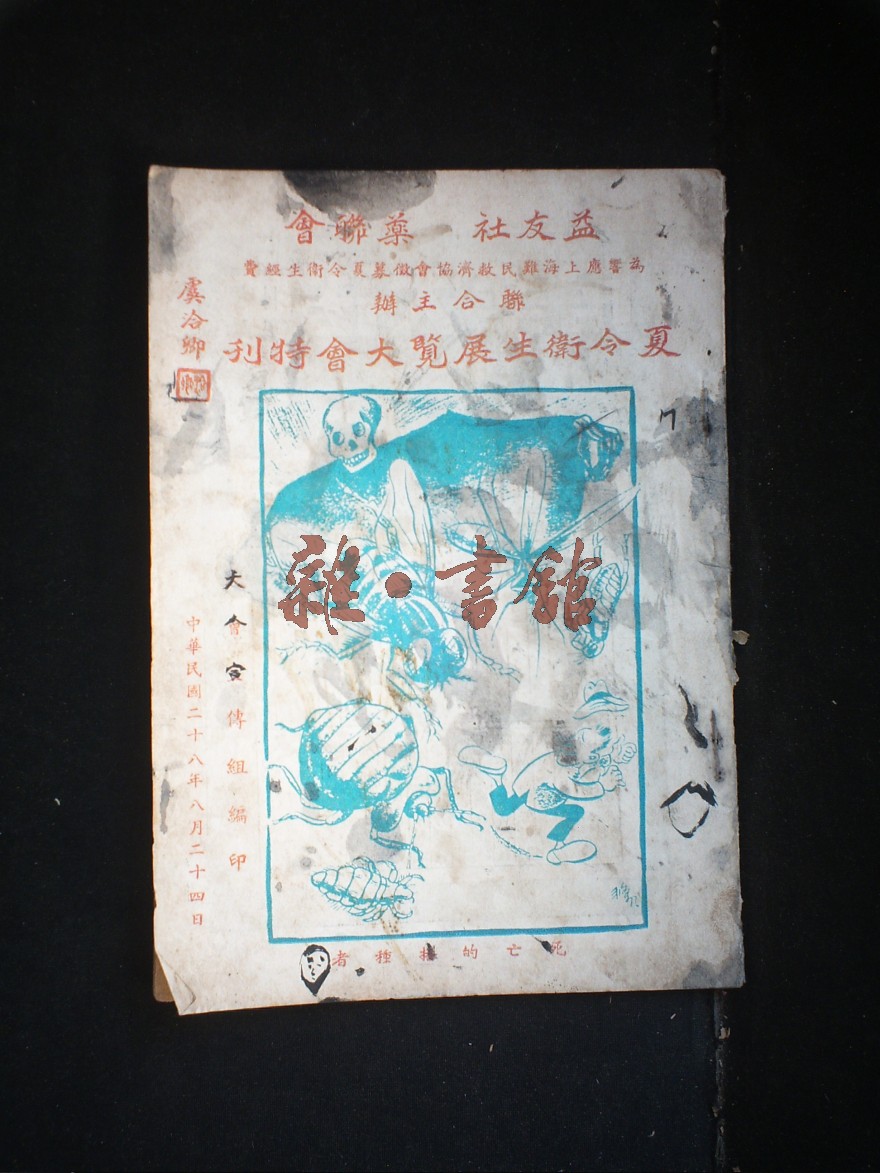 益友社 藥聯會
為響應上海難民救濟協會徵募夏令衛生經費
聯合主辦
夏令衛生展覽大會特刊
虞洽卿
大會宣傳組編印
中華民國二十八年八月二十四日
雜·書館
死亡的播種者